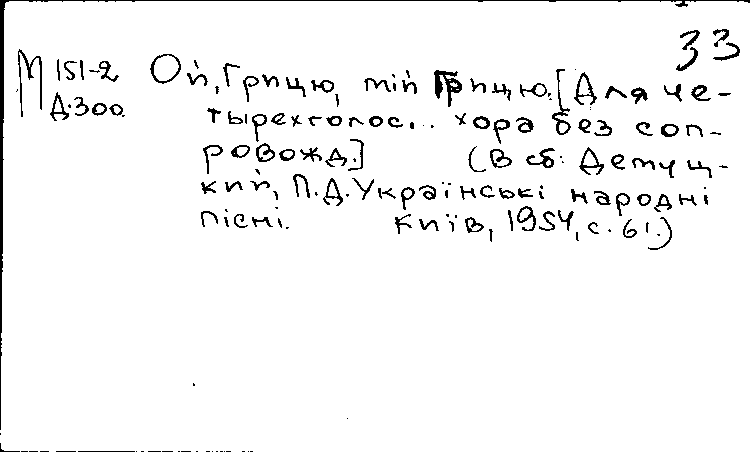 33
М 151-2 Ой, Грицю, мій Грицю. [Для че-
Д.300. тырехголос... хора без соп-
ровожд.] (В сб: Демуц-
кий, П.Д. Українські народні
пісні. Київ, 1954, с. 61.)